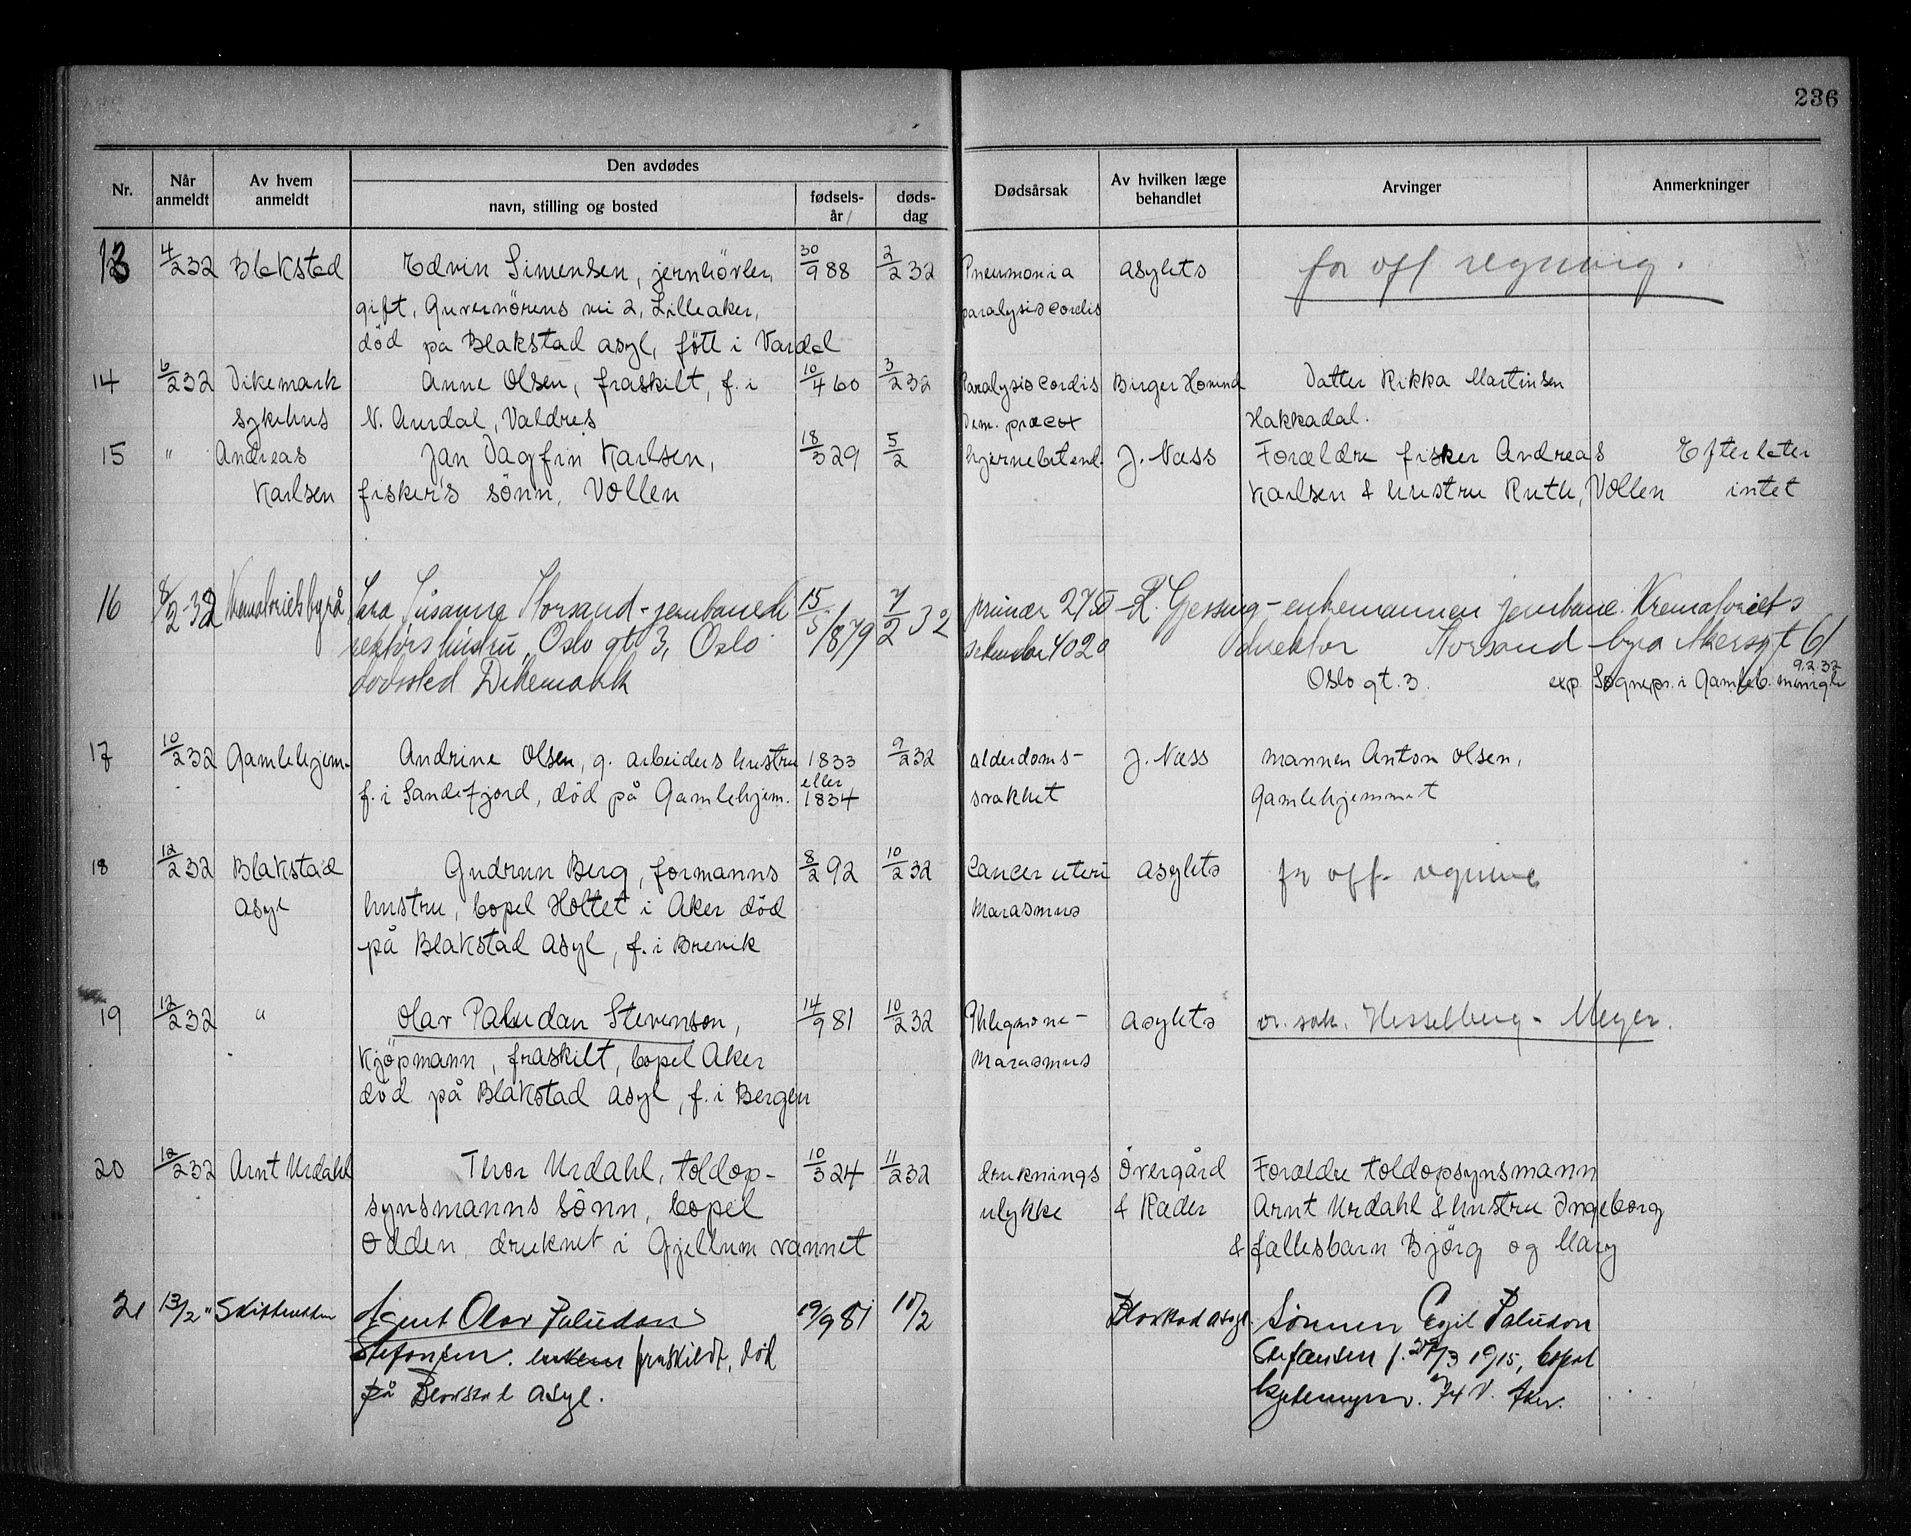 236
Nr.
Når anmeldt
Av hvem anmeldt
Den avdødes
navn, stilling og bosted
fødsels-år
døds-dag
Dødsårsak
Av hvilken læge behandlet
Arvinger
Anmerkninger
13 4/2 32 Blakstad Edvin Simensen, jernhövler, 30/9 88 2/2 32 Pneumonia asylets for off regning.
gift, Guvernörens vei 2, Lilleaker, paralysis cordis
död på Blakstad asyl, fött i Vardal
14 6/2 32 Dikemark Anne Olsen, fraskilt, f. i 10/4 60 3/2 32 Paralysis cordis Birger Datter Rikka Martinsen
sykehus N. Aurdal, Valdres Dem. præcox Hakkadal.
15 " Andreas Jan Dagfin Karlsen, 18/3 29 5/2 hjernebetend. J. Næss Forældre fisker Andreas Efterlater
Karlsen fisker's sönn, Vollen Karlsen & hustru Ruth, Vollen intet
16 8/2-32 Krematoriets byrå Susanna Storsand - jernbanedi 15/5/1879 7/2 32 primær R. Gjessing - enkemannen jernbane. Krematoriets
rektors hustru, Oslo gt 3, Oslo sekundær direktor Storsand - byrå Akersgt 61
dödssted Dikemark Oslo gt. 3. exp. Sogneps. i Gamleb. menigh. 9.2.32
17 10/2 32 Gamlehjem. Andrine Olsen, g. arbeiders hustru 1833 9/2 32 alderdoms- J. Næss mannen Anton Olsen,
f. i Sandefjord, död på Gamlehjem. eller 1834 svakhet Gamlehjemmet
18 12/2 32 Blakstad Gudrun Berg, formanns 8/2 92 10/2 32 Cancer uteri asylets for off. regning
asyl hustru, bopel Holtet i Aker död Marasmus
på Blakstad asyl, f. i Brevik
19 12/2 32 " Olav Paludan Stevenson, 14/9 81 10/2 32 Phlegmone- asylets or. sak. Hesselberg - Meyer.
Kjöpmann, fraskilt, bopel Aker Marasmus
död på Blakstad asyl, f. i Bergen
20 12/2 32 Arnt Urdahl Thor Urdahl, toldop- 10/3 24 11/2 32 druknings Övergård Forældre toldopsynsmann
synsmanns sönn, bopel ulykke & Rader Arnt Urdahl & hustru Ingeborg
Odden, druknet i Gjellum vannet & fællesbarn Björg og Mary
21 13/2 " Skifteretten Agent Olav Paludan 19/9 81 10/2 Blakstad asyl. Sönnen Egil Paludan
Stefansen. fraskildt, död Stefansen f. /3 1915, bopel
på Blakstad asyl. 74 V. Aker.